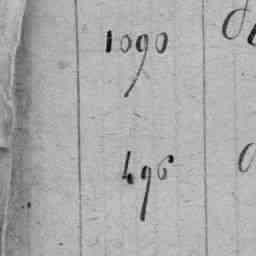 1090
496